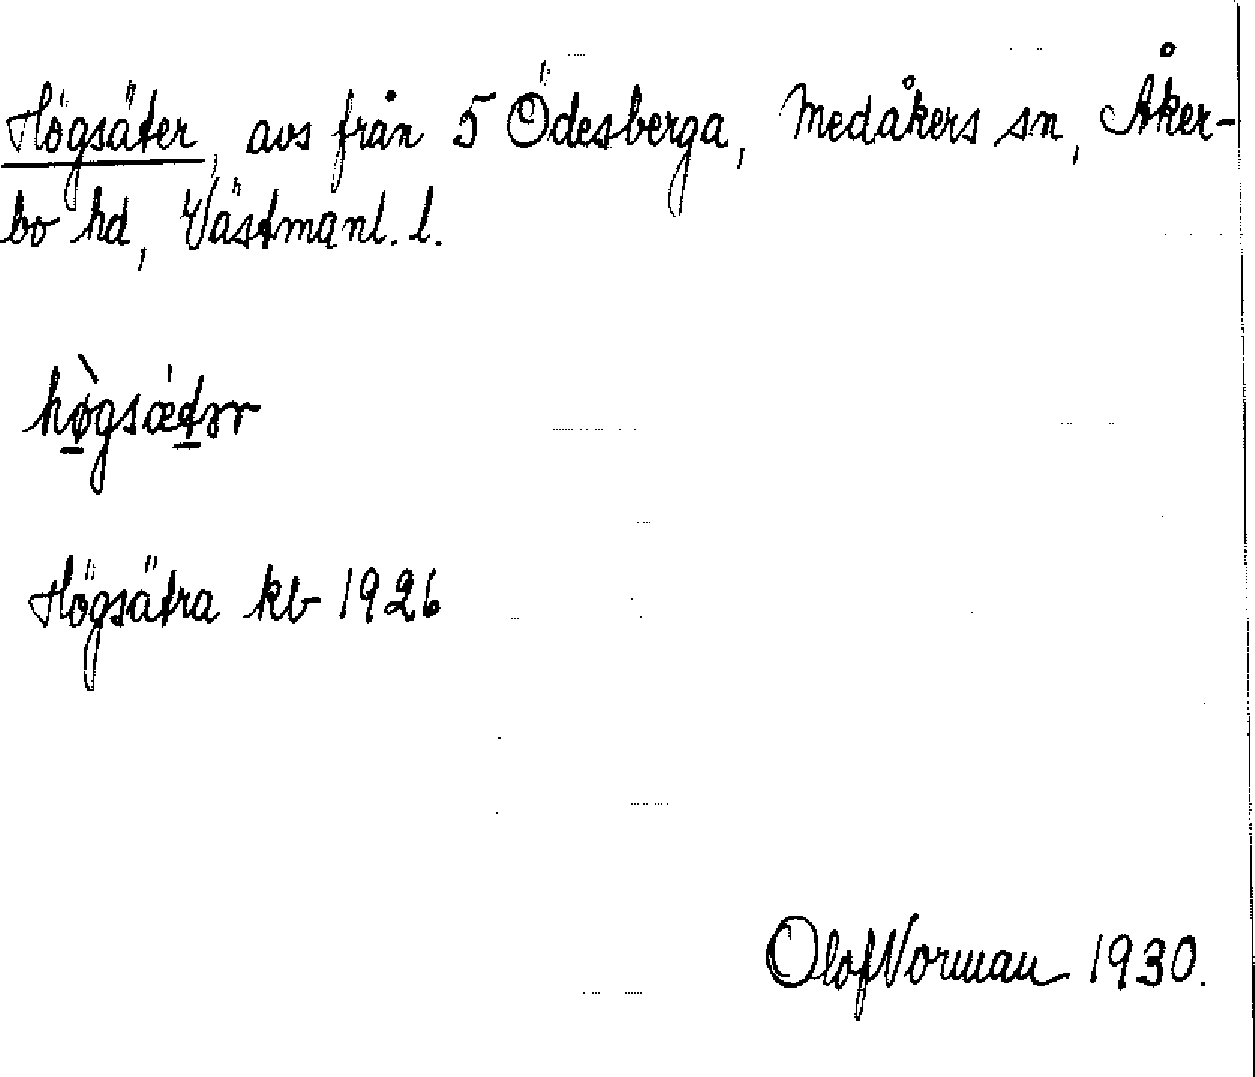 Högsäter, avs från 5 Ödesberga, Medåkers sn, Åker-
bo hd, Västmanl. l.
hø̀gsæ̀tər
Högsätra kb 1926
Olof Norman 1930.